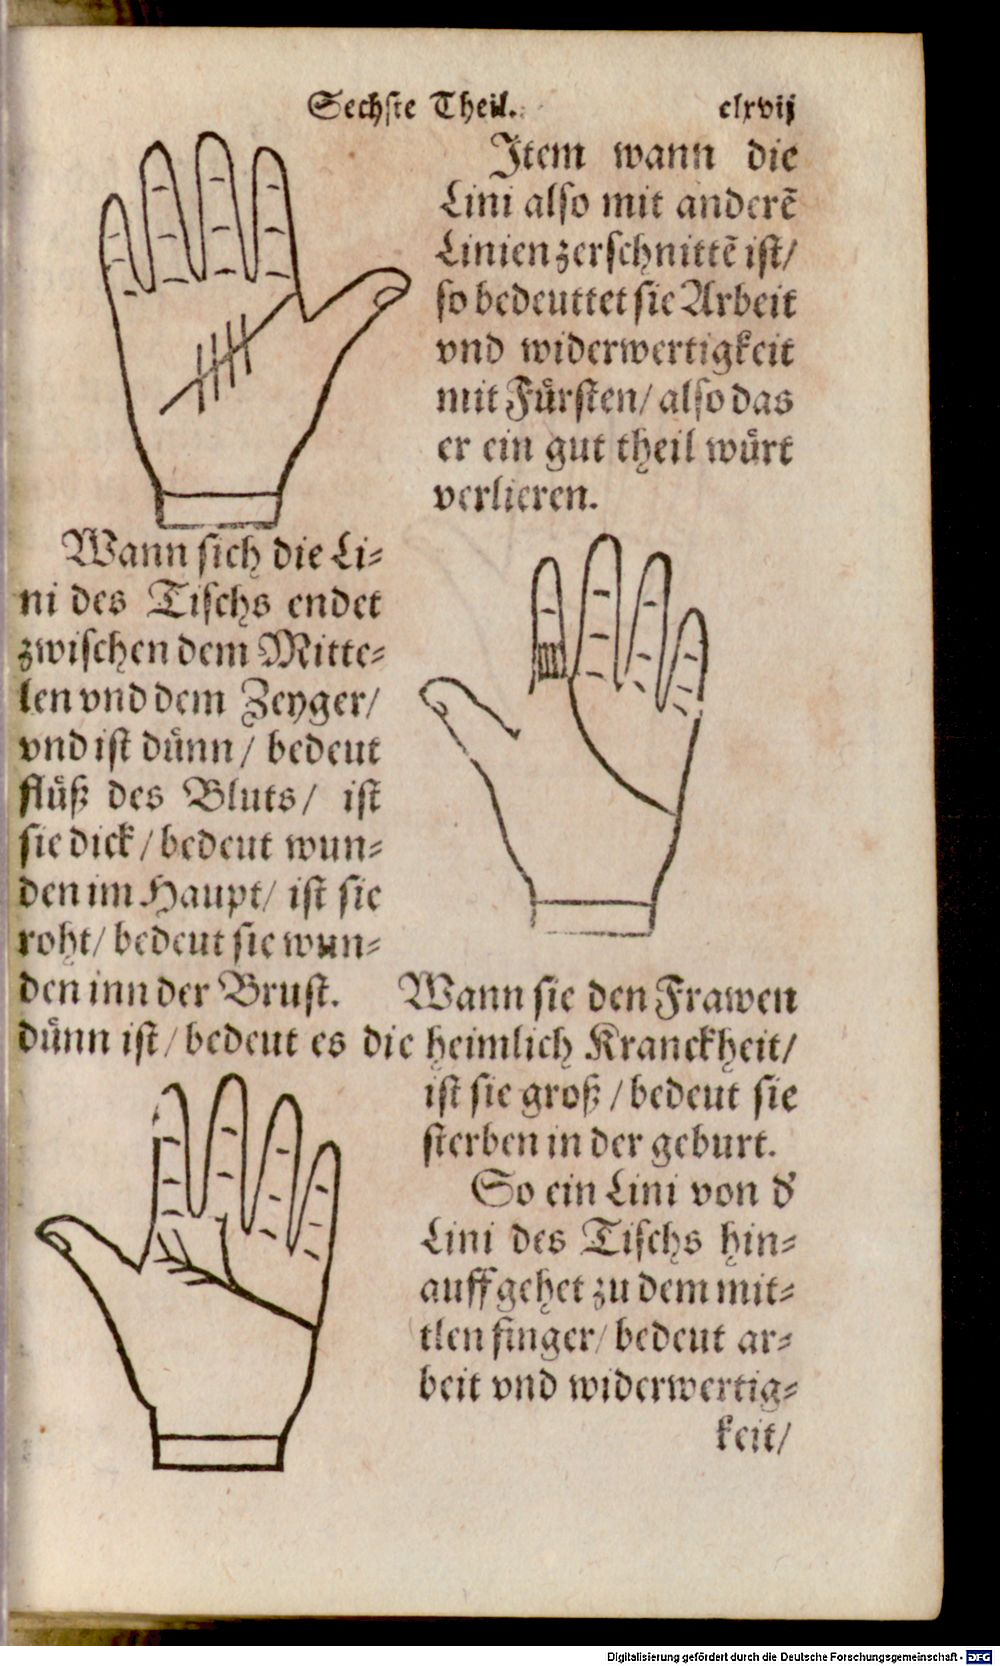 Sechste Theil. clxvij
Item wann die
Lini also mit anderẽ
Linien zerschnittẽ ist/
so bedeuttet sie Arbeit
vnd widerwertigkeit
mit Fürsten/ also das
er ein gut theil würt
verlieren.
Wann sich die Li-
ni des Tischs endet
zwischen dem Mitte-
len vnd dem Zeyger/
vnd ist dünn/ bedeut
flüß des Bluts/ ist
sie dick/ bedeut wun-
den im Haupt/ ist sie
roht/ bedeut sie wun-
den inn der Brust. Wann sie den Frawen
dünn ist/ bedeut es die heimlich Kranckheit/
ist sie groß/ bedeut sie
sterben in der geburt.
So ein Lini von d'
Lini des Tischs hin-
auff gehet zu dem mit-
tlen finger/ bedeut ar-
beit vnd widerwertig-
keit/
Digitalisierung gefördert durch die Deutsche Forschungsgemeinschaft - DFG